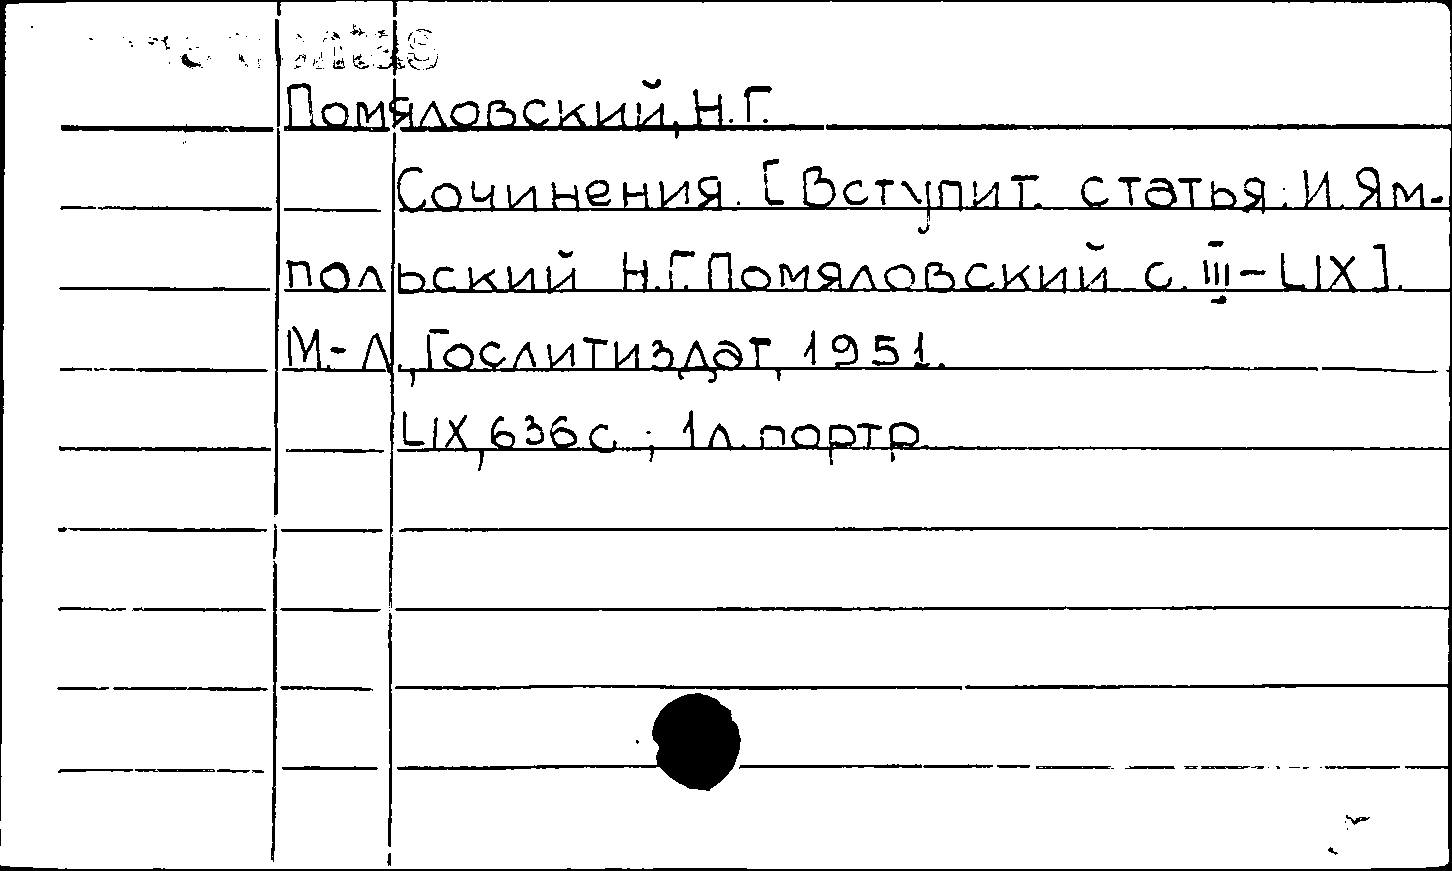 Помяловский, Н.Г.
Сочинения. [Вступит. статья: И. Ям-
польский Н.Г. Помяловский с. III-LIX].
М.-Л., Гослитиздат, 1951.
LIX, 636 с.; 1 л. портр.